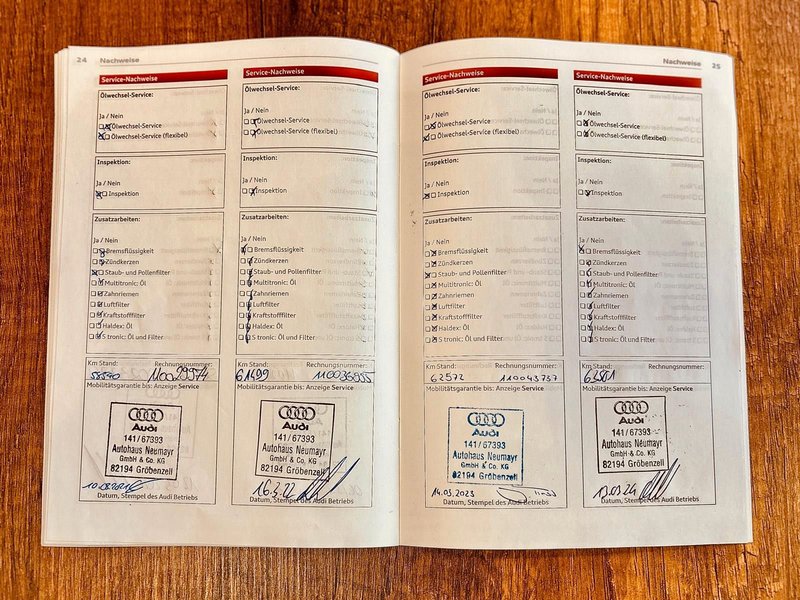 24 Nachweise
Service-Nachweise
Ölwechsel-Service:
Ja / Nein
Ölwechsel-Service
Ölwechsel-Service (flexibel)
Inspektion:
Ja / Nein
Inspektion
Zusatzarbeiten:
Ja / Nein
Bremsflüssigkeit
Zündkerzen
Staub- und Pollenfilter
Multitronic: Öl
Zahnriemen
Luftfilter
Kraftstofffilter
Haldex: Öl
S tronic: Öl und Filter
Km Stand: Rechnungsnummer:
Mobilitätsgarantie bis: Anzeige Service
Audi
141/67393
Autohaus Neumayr
GmbH & Co. KG
82194 Gröbenzell
Datum, Stempel des Audi Betriebs
Service-Nachweise
Ölwechsel-Service:
Ja / Nein
Ölwechsel-Service
Ölwechsel-Service (flexibel)
Inspektion:
Ja / Nein
Inspektion
Zusatzarbeiten:
Ja / Nein
Bremsflüssigkeit
Zündkerzen
Staub- und Pollenfilter
Multitronic: Öl
Zahnriemen
Luftfilter
Kraftstofffilter
Haldex: Öl
S tronic: Öl und Filter
Km Stand: Rechnungsnummer:
61499 110036955
Mobilitätsgarantie bis: Anzeige Service
Audi
141/67393
Autohaus Neumayr
GmbH & Co. KG
82194 Gröbenzell
16.3.22
Datum, Stempel des Audi Betriebs
Nachweise 25
Service-Nachweise
Ölwechsel-Service:
Ja / Nein
Ölwechsel-Service
Ölwechsel-Service (flexibel)
Inspektion:
Ja / Nein
Inspektion
Zusatzarbeiten:
Ja / Nein
Bremsflüssigkeit
Zündkerzen
Staub- und Pollenfilter
Multitronic: Öl
Zahnriemen
Luftfilter
Kraftstofffilter
Haldex: Öl
S tronic: Öl und Filter
Km Stand: Rechnungsnummer:
62572 110043737
Mobilitätsgarantie bis: Anzeige Service
Audi
141/67393
Autohaus Neumayr
GmbH & Co. KG
82194 Gröbenzell
14.03.2023
Datum, Stempel des Audi Betriebs
Service-Nachweise
Ölwechsel-Service:
Ja / Nein
Ölwechsel-Service
Ölwechsel-Service (flexibel)
Inspektion:
Ja / Nein
Inspektion
Zusatzarbeiten:
Ja / Nein
Bremsflüssigkeit
Zündkerzen
Staub- und Pollenfilter
Multitronic: Öl
Zahnriemen
Luftfilter
Kraftstofffilter
Haldex: Öl
S tronic: Öl und Filter
Km Stand: Rechnungsnummer:
Mobilitätsgarantie bis: Anzeige Service
Audi
141/67393
Autohaus Neumayr
GmbH & Co. KG
82194 Gröbenzell
13.03.24
Datum, Stempel des Audi Betriebs